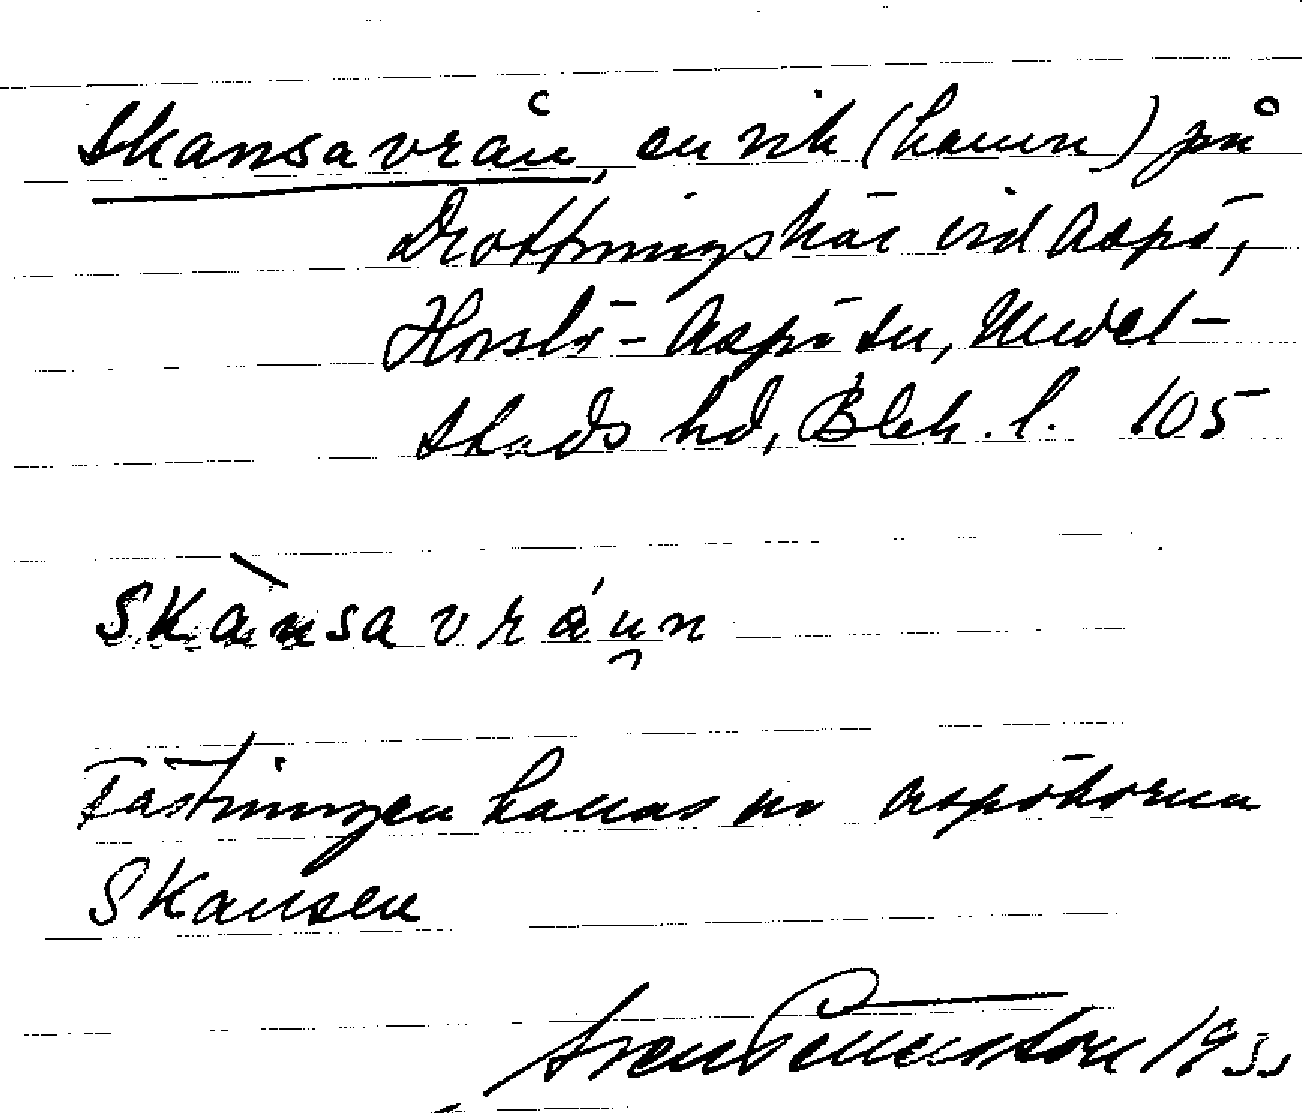 Skansavrån, en vik (hamn) på
Drottningskär vid Aspö,
Hasslö-Aspö sn, Medel-
stads hd, Blek. l. 105
Skànsavráun
Fästningen kallas av aspöborna
Skansen
Sven Benson